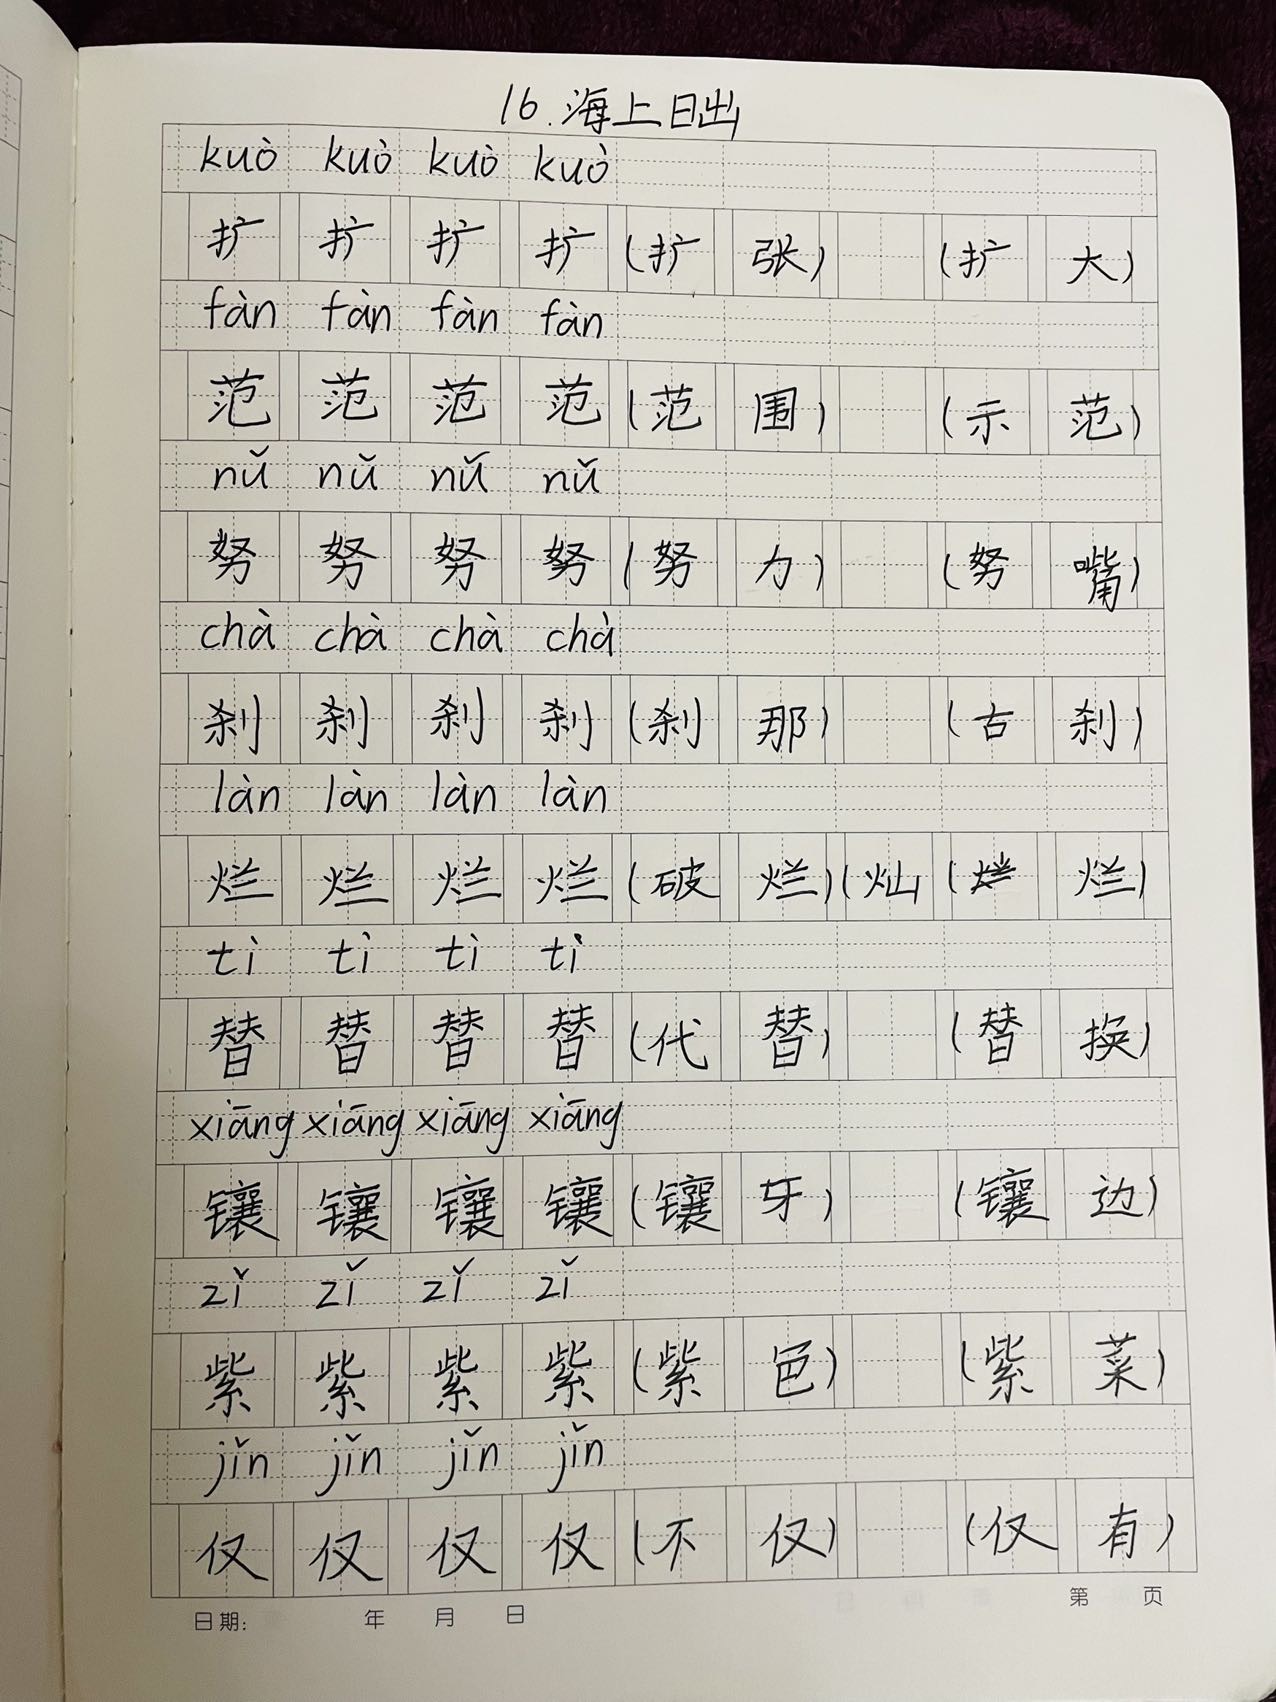 16.海上日出
kuò kuò kuò kuò
扩 扩 扩 扩 (扩 张) (扩 大)
fàn fàn fàn fàn
范 范 范 范 (范 围) (示 范)
nǔ nǔ nǔ nǔ
努 努 努 努 (努 力) (努 嘴)
chà chà chà chà
刹 刹 刹 刹 (刹 那) (古 刹)
làn làn làn làn
烂 烂 烂 烂 (破 烂) (灿 烂)
tì tì tì tì
替 替 替 替 (代 替) (替 换)
xiāng xiāng xiāng xiāng
镶 镶 镶 镶 (镶 牙) (镶 边)
zǐ zǐ zǐ zǐ
紫 紫 紫 紫 (紫 色) (紫 菜)
jǐn jǐn jǐn jǐn
仅 仅 仅 仅 (不 仅) (仅 有)
日期: 年 月 日 第 页